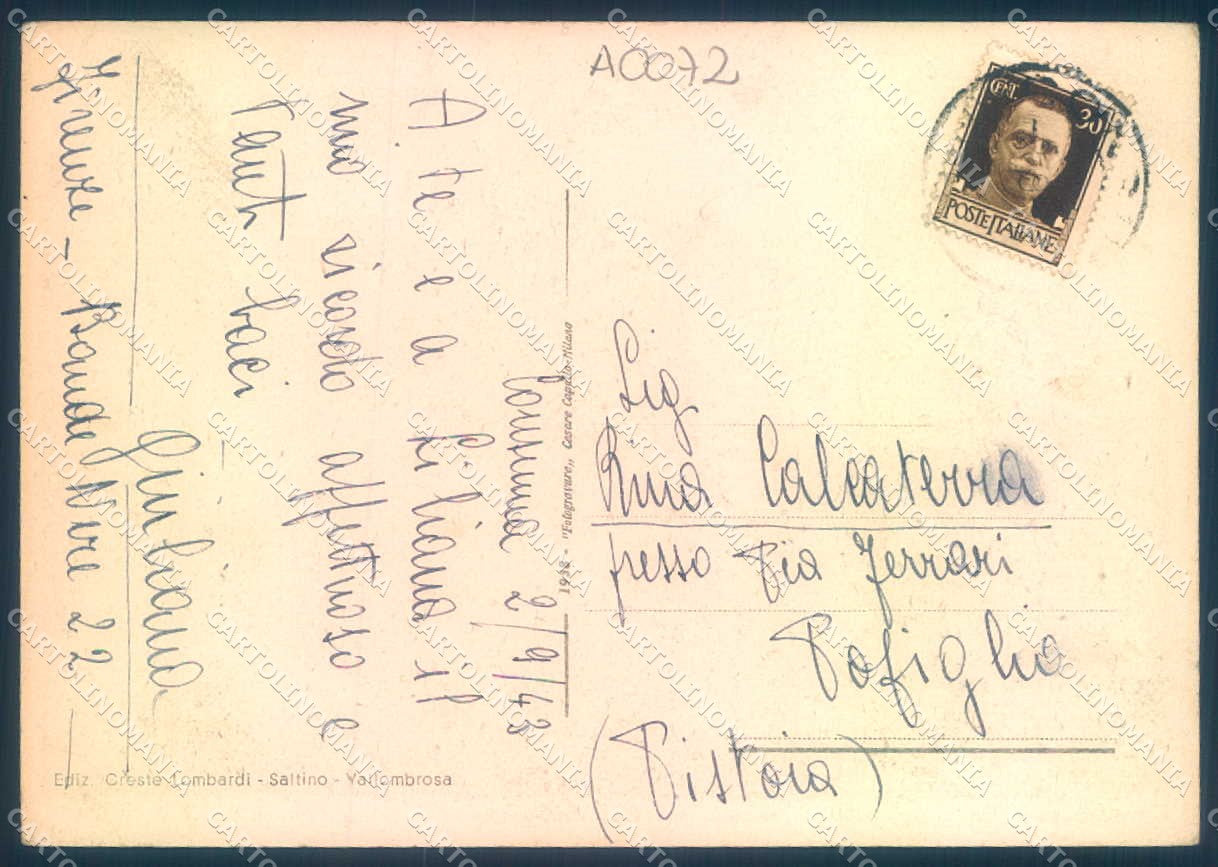 A0072
CENT. 30
POSTE ITALIANE
Consuma 2/9/43
A te e a Liliana il
mio ricordo affettuoso e
tanti baci
Giuliana
Firenze - Bande Nere 22
1938 - "Fotogravure„ Cesare Capello-Milano
Sig
Rina Calcaterra
presso Pia Ferrari
Popiglio
(Pistoia)
Ediz. Oreste Lombardi - Saltino - Vallombrosa
CARTOLINOMANIA